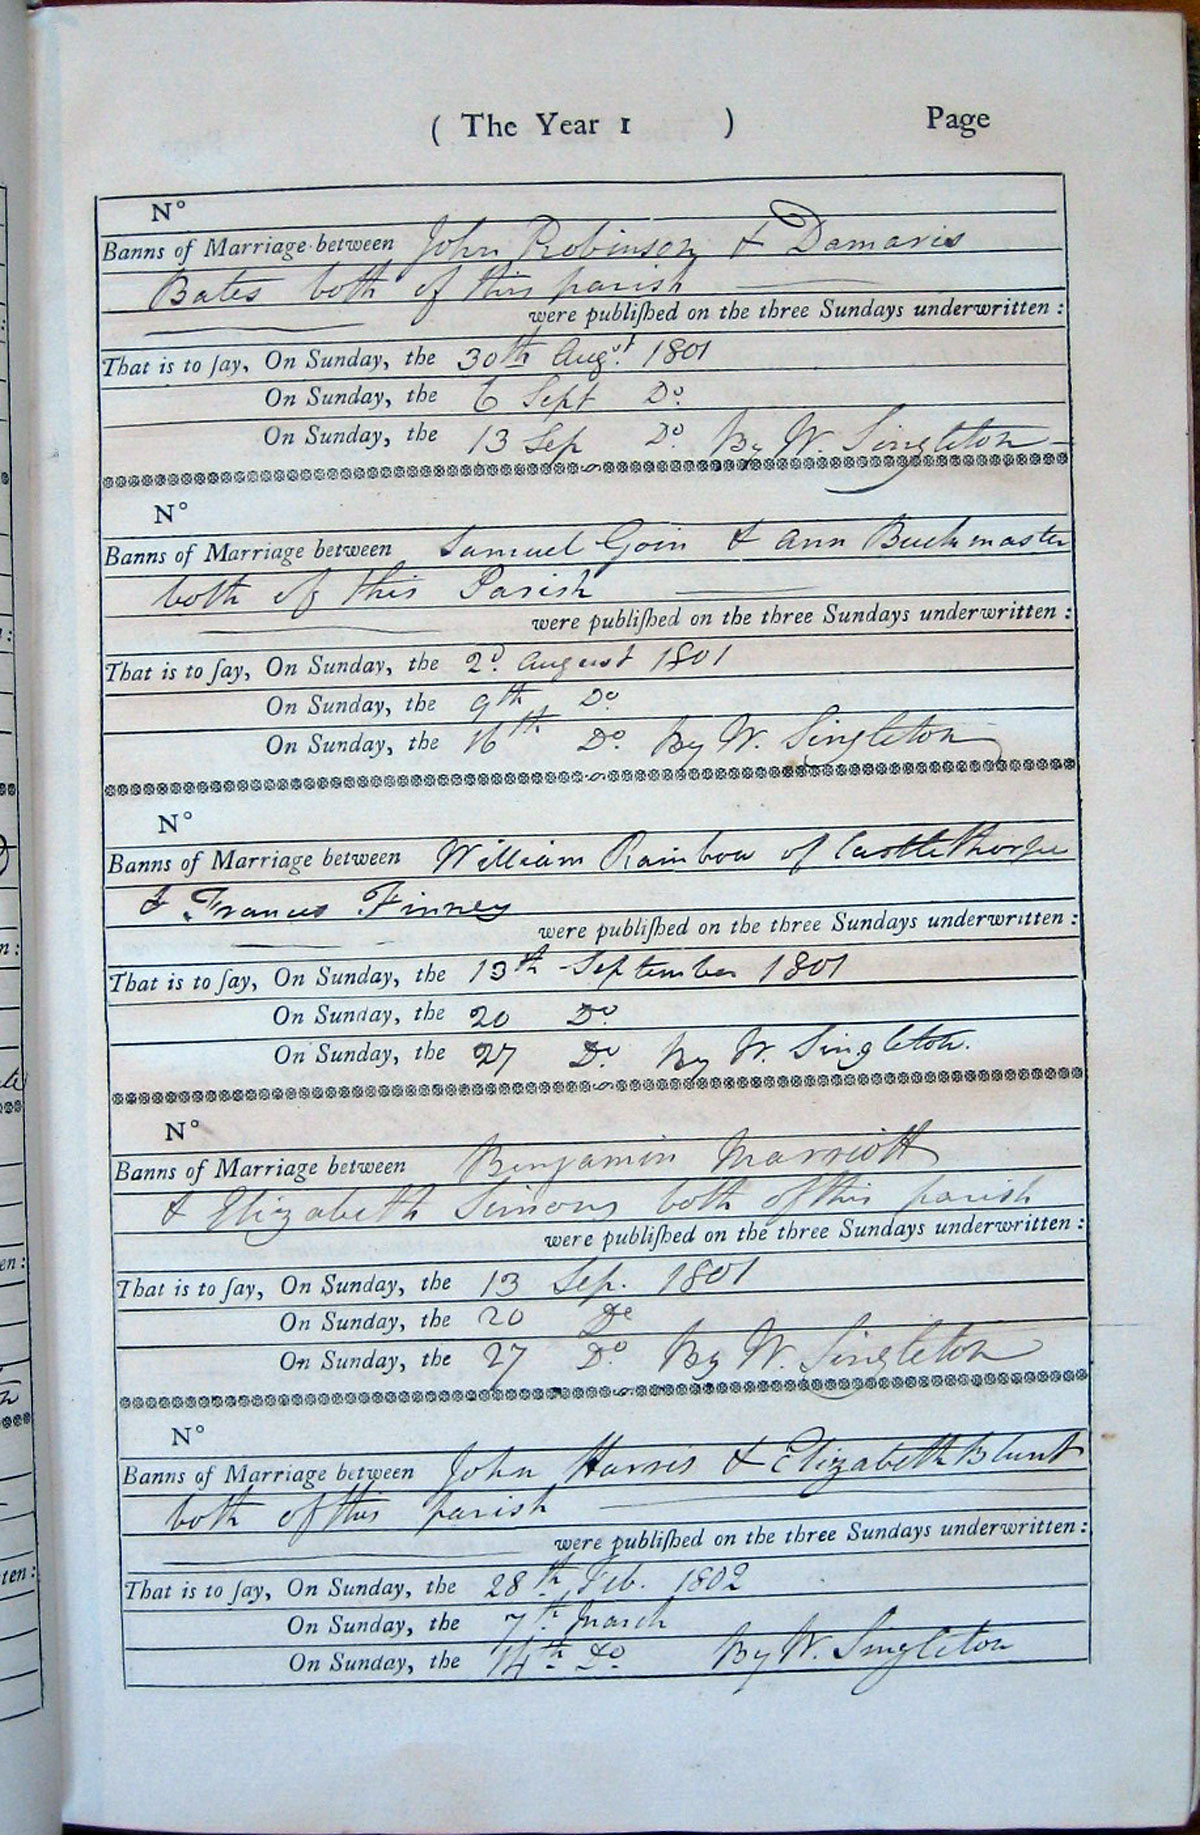 ( The Year 1 ) Page
N°
Banns of Marriage between John Robinson & Damaris
Bates both of this parish
were publiſhed on the three Sundays underwritten :
That is to ſay, On Sunday, the 30th Augst. 1801
On Sunday, the 6 Sept Do.
On Sunday, the 13 Sep Do. By W. Singleton
N°
Banns of Marriage between Samuel Goin & Ann Buckmaster
both of this Parish
were publiſhed on the three Sundays underwritten :
That is to ſay, On Sunday, the 2d. August 1801
On Sunday, the 9th Do
On Sunday, the 16th Do. By W. Singleton
N°
Banns of Marriage between William Rainbow of Castlethorpe
& Frances Finney
were publiſhed on the three Sundays underwritten :
That is to ſay, On Sunday, the 13th September 1801
On Sunday, the 20 Do
On Sunday, the 27 Do. By W. Singleton.
N°
Banns of Marriage between Benjamin Marriott
& Elizabeth Simons both of this parish
were publiſhed on the three Sundays underwritten :
That is to ſay, On Sunday, the 13 Sep. 1801
On Sunday, the 20 Do
On Sunday, the 27 Do. By W. Singleton
N°
Banns of Marriage between John Harris & Elizabeth Blunt
both of this parish
were publiſhed on the three Sundays underwritten :
That is to ſay, On Sunday, the 28th Feb. 1802
On Sunday, the 7th. March
On Sunday, the 14th Do. By W. Singleton